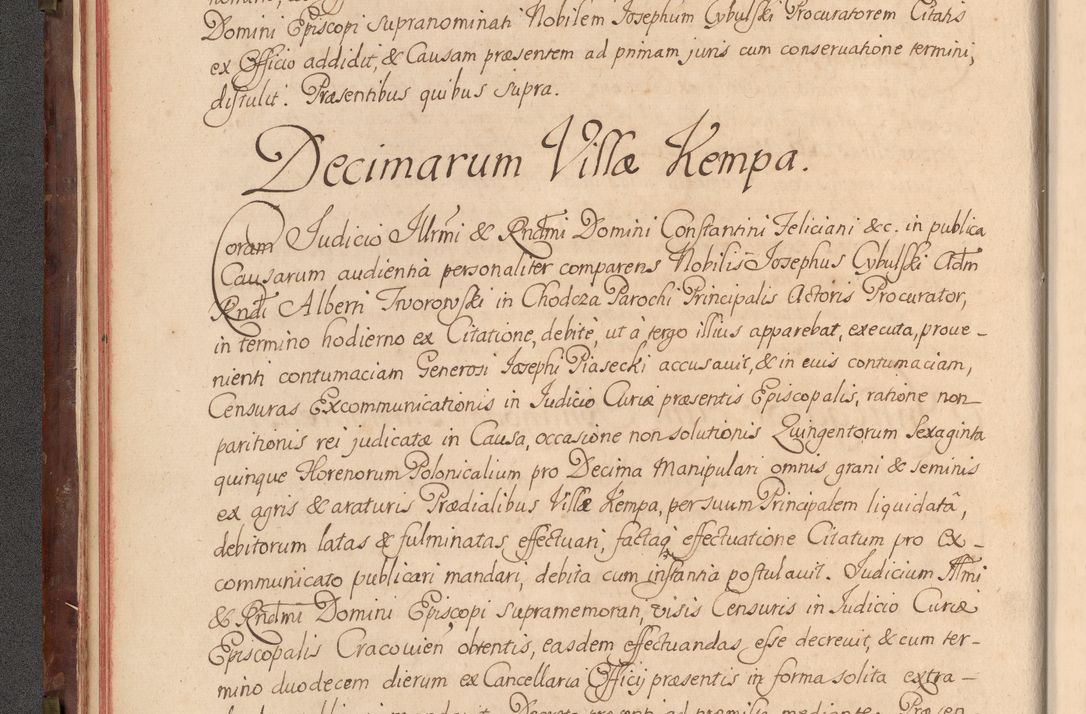 Domini Episcopi supranominati Nobilem Josephum Cybulski Procuratorem Citatis
ex Officio addidit, & Causam præsentem ad primam juris cum conservatione termini,
distulit. Præsentibus quibus supra.
Decimarum Villæ Kempa.
Coram Judicio Illrmi & Rndmi Domini Constantini Feliciani &c. in publica
Causarum audientia personaliter comparens Nobilis Josephus Cybulski Adm
Rndi Alberti Tworowski in Chodcza Parochi Principalis Actoris Procurator,
in termino hodierno ex Citatione, debite, ut à tergo illius apparebat, executa, prove-
nienti contumaciam Generosi Josephi Piasecki accusavit, & in euis contumaciam,
Censuras Excommunicationis in Judicio Curiæ præsentis Episcopalis, ratione non-
paritionis rei judicatæ in Causa, occasione non solutionis Quingentorum Sexaginta
quinque Florenorum Polonicalium pro Decima Manipulari omnis grani & seminis
ex agris & araturis Prædialibus Villæ Kempa, per suum Principalem liquidatâ,
debitorum latas & fulminatas effectuari, factaq effectuatione Citatum pro Ex-
communicato publicari mandari, debita cum instantia postulavit. Judicium Illmi
& Rndmi Domini Episcopi supramemorati, visis Censuris in Judicio Curiæ
Episcopalis Cracovien obtentis, easdem effectuandas esse decrevit, & cum ter-
mino duodecem dierum ex Cancellaria Officij præsentis in forma solita extra-